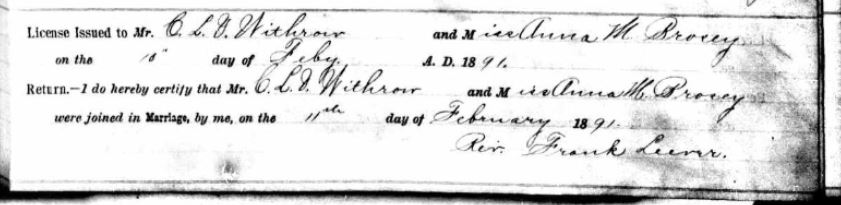 License Issued to Mr. C. L. D. Withrow and Miss Anna M Brosey
on the 10" day of Feby. A. D. 1891.
Return.—I do hereby certify that Mr. C. L. D. Withrow and Miss Anna M. Brosey
were joined in Marriage, by me, on the 11th day of February 1891.
Rev. Frank Leever.